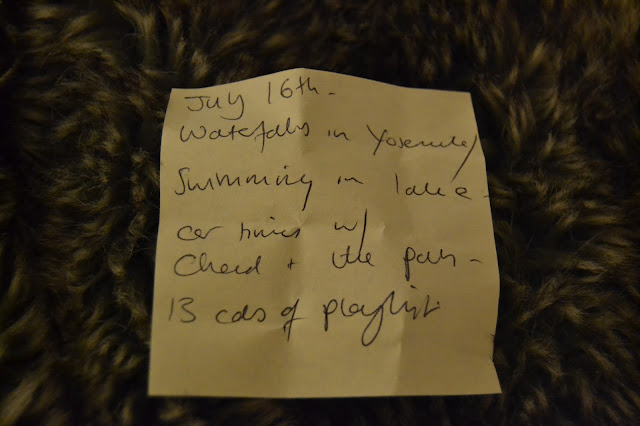 July 16th -
Waterfalls in Yosemite
Swimming in lake -
car times w/
+ the
13 cds of playlist.